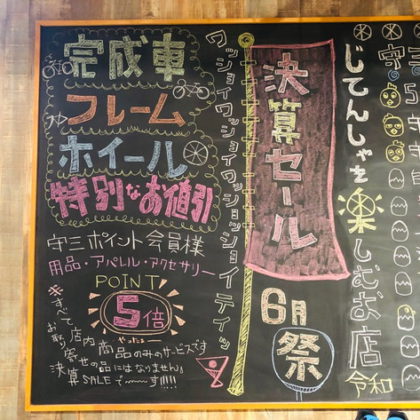 完成車
フレーム
ホイール
特別なお値引
守三ポイント会員様
用品・アパレル・アクセサリー
POINT
5倍
やったぁ
※すべて店内商品のみのサービスです
お取り寄せの品にはなりません
決算SALEで〜〜す!!!!
ワッショイワッショイワッショッショイティッ
決算セール
6月
祭
じてんしゃを楽しむお店
令和
守